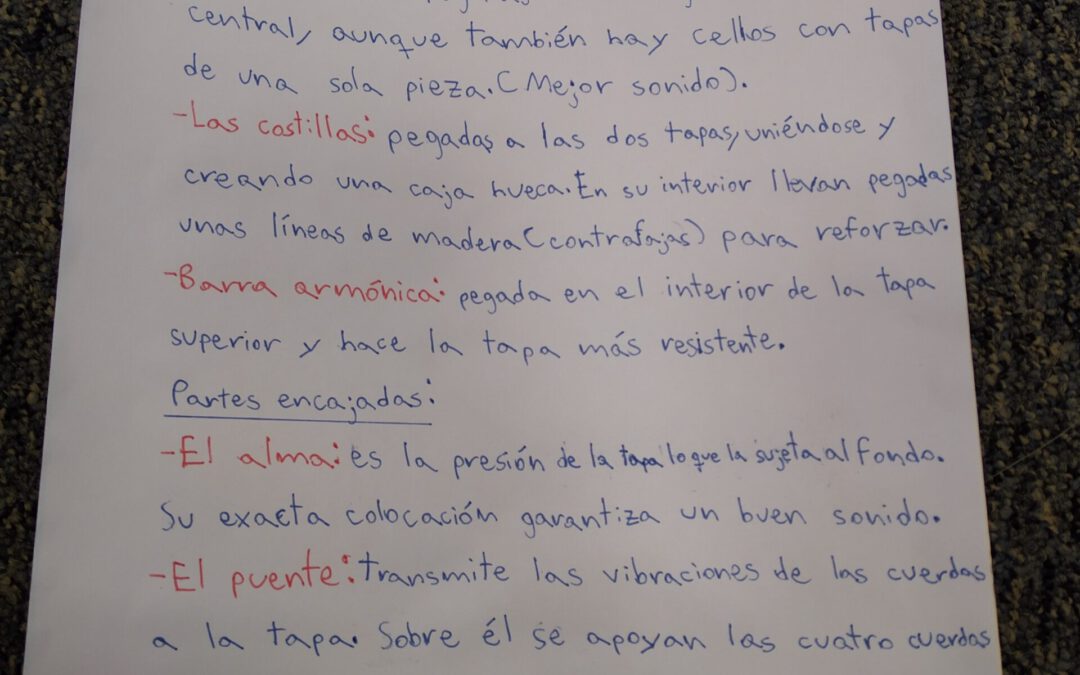 central, aunque también hay cellos con tapas
de una sola pieza. (Mejor sonido).
-Las costillas: pegadas a las dos tapas, uniéndose y
creando una caja hueca. En su interior llevan pegadas
unas líneas de madera (contrafajas) para reforzar.
-Barra armónica: pegada en el interior de la tapa
superior y hace la tapa más resistente.
Partes encajadas:
-El alma: es la presión de la tapa lo que la sujeta al fondo.
Su exacta colocación garantiza un buen sonido.
-El puente: transmite las vibraciones de las cuerdas
a la tapa. Sobre él se apoyan las cuatro cuerdas